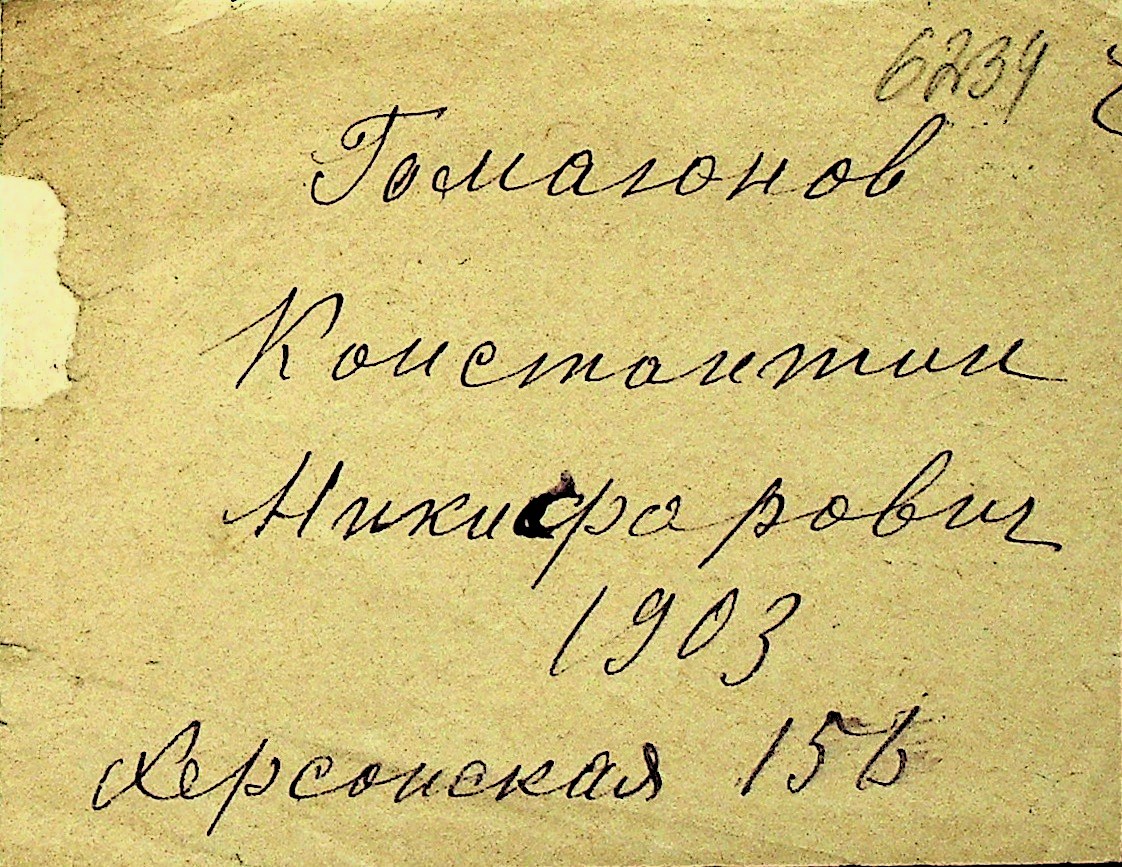 6239
Гомагонов
Константин
Никифорович
1903
Херсонская 156